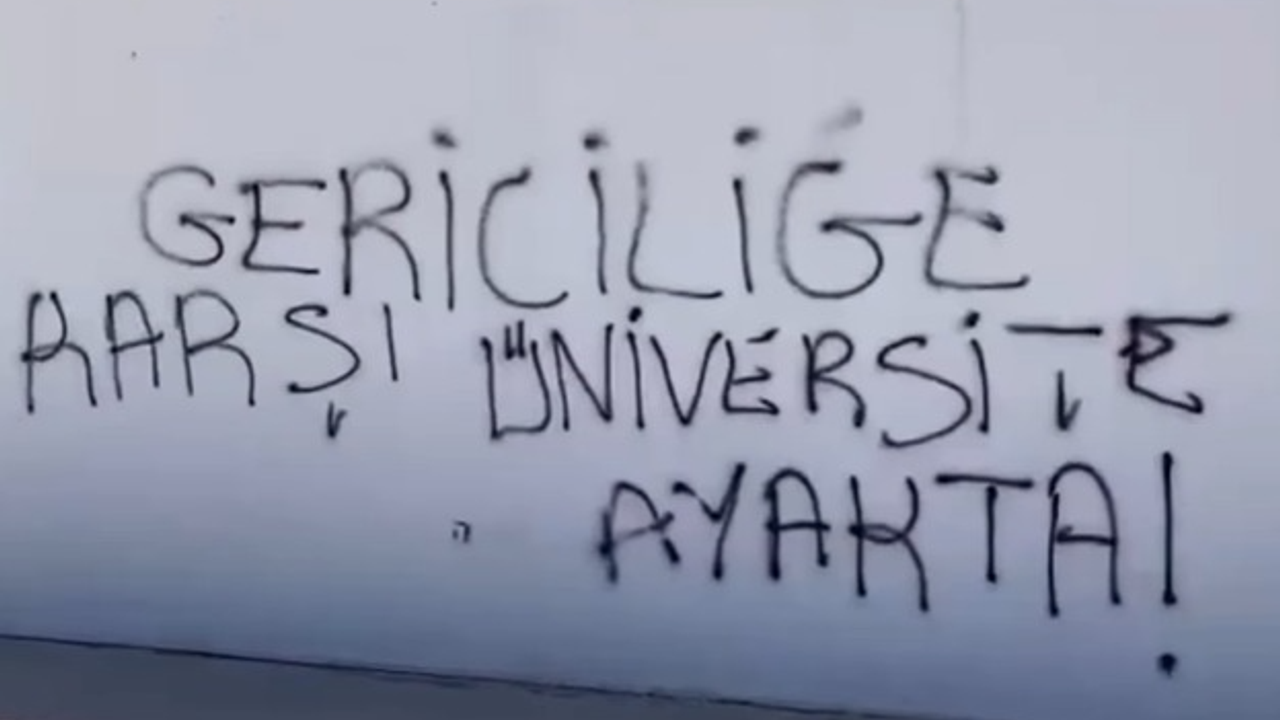 GERİCİLİĞE
KARŞI ÜNİVERSİTE
AYAKTA!